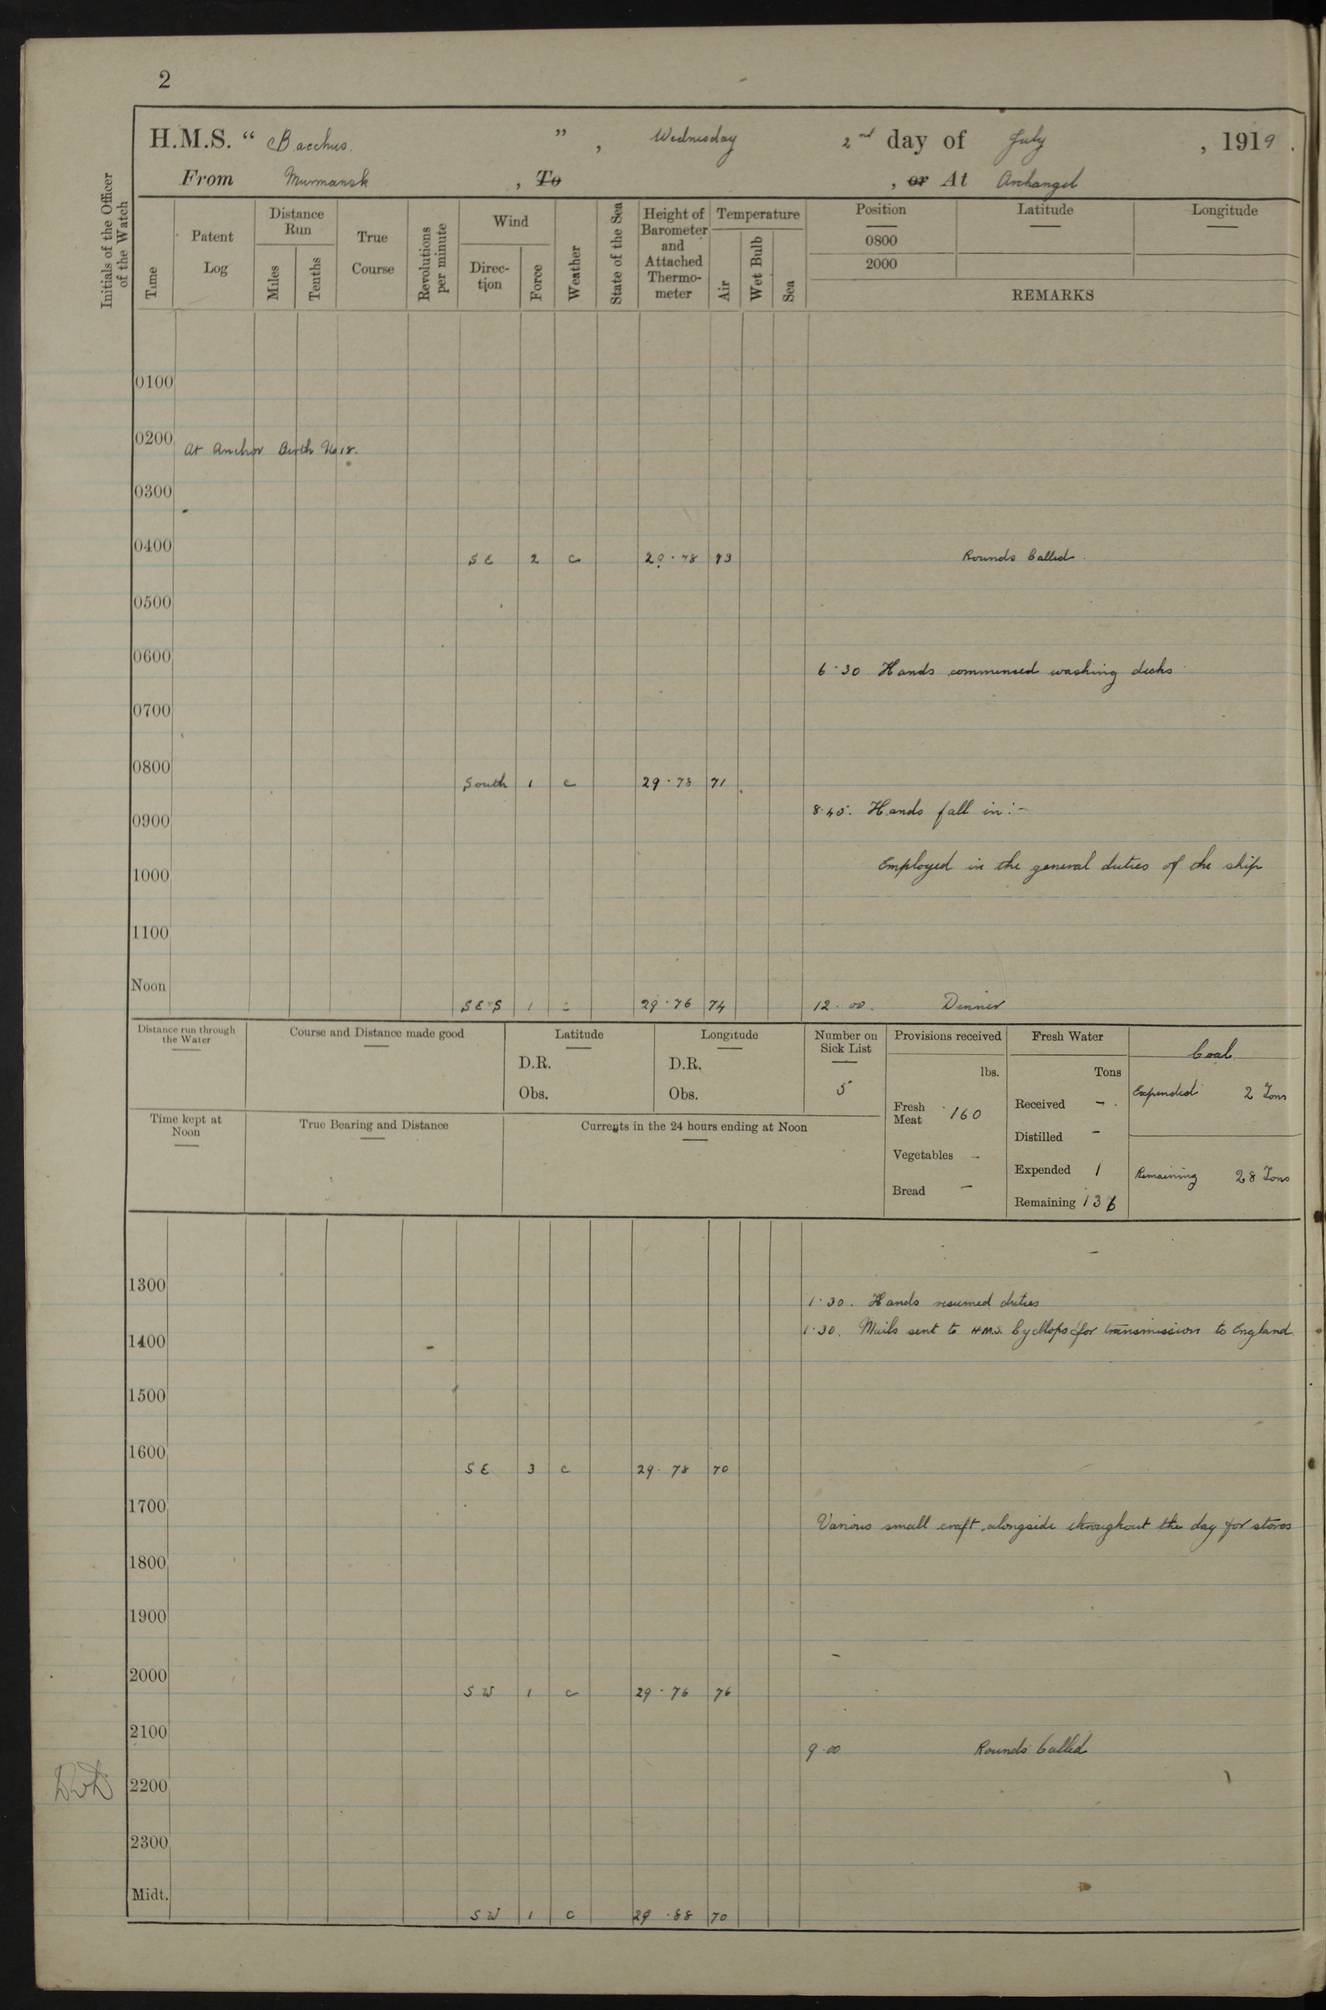 2
H.M.S. “ Bacchus. ” , Wednesday 2nd day of July , 1919.
From Murmansk , To , or At Archangel
Initials of the Officer of the Watch
Time
Patent Log
Distance Run
Miles
Tenths
True Course
Revolutions per minute
Wind
Direc-tion
Force
Weather
State of the Sea
Height of Barometer and Attached Thermo-meter
Temperature
Air
Wet Bulb
Sea
Position Latitude Longitude
0800
2000
REMARKS
0100
0200 At Anchor Berth No 18.
0300
0400 SE 2 c 29.78 73 Rounds Called.
0500
0600
6.30 Hands commenced washing decks
0700
0800 South 1 c 29.78 71
8.45. Hands fall in:-
0900
Employed in the general duties of the ship
1000
1100
Noon SE'S 1 c 29.76 74 12.00. Dinner
Distance run through the Water
Course and Distance made good
Latitude
D.R.
Obs.
Longitude
D.R.
Obs.
Number on Sick List
5
Provisions received
lbs.
Fresh Meat 160
Vegetables -
Bread -
Fresh Water
Tons
Received -
Distilled -
Expended 1
Remaining 136
Coal
Expended 2 Tons
Remaining 28 Tons
Time kept at Noon
True Bearing and Distance
Currents in the 24 hours ending at Noon
1300
1.30. Hands resumed duties
1.30. Mails sent to H.M.S. Cycllops for transmission to England.
1400
1500
1600 SE 3 c 29.78 70
1700
Various small craft alongside throughout the day for stores
1800
1900
2000 SW 1 c 29.76 76
2100
9.00 Rounds Called
2200
2300
Midt. SW 1 c 29.88 70